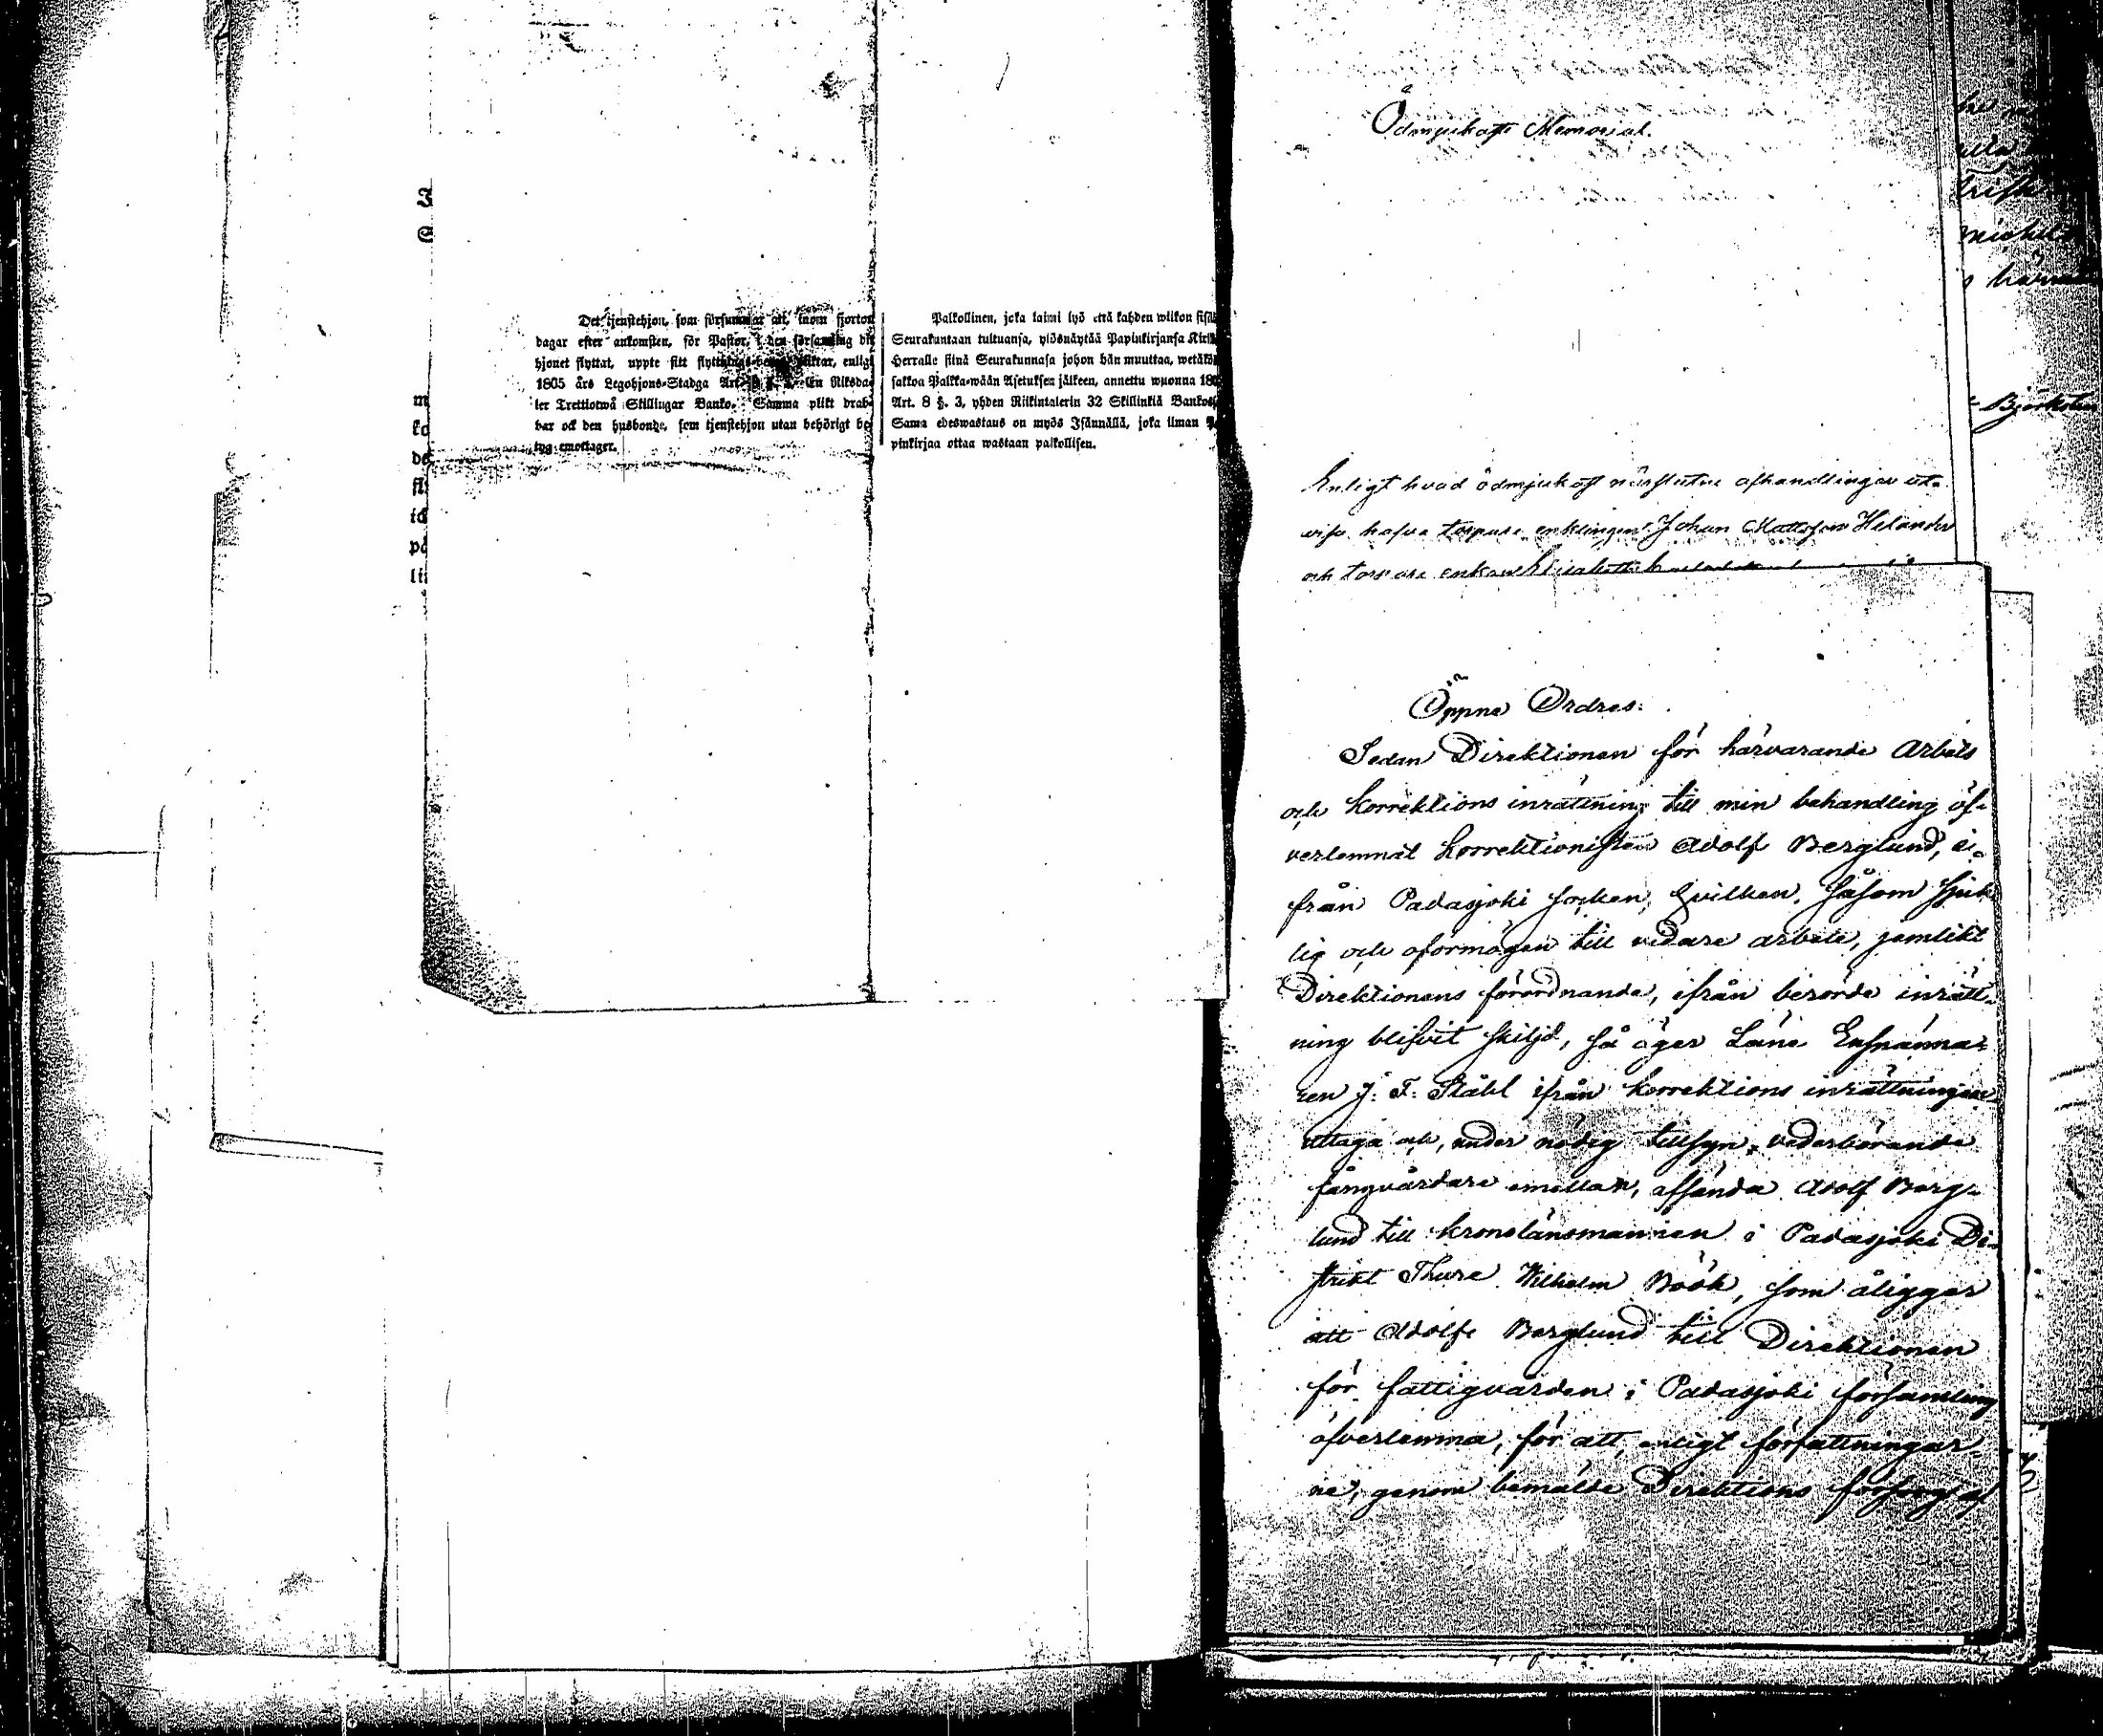 Det tjenstehjon, som försummar att, inom fjorton
dagar efter ankomsten, för Pastor, i den församling dit
hjonet flyttat, uppte sitt flyttnings-betyg, pliktar, enligt
1805 års Legohjons-Stadga Art. 8 §. 3. En Riksda-
ler Trettiotwå Skillingar Banko. Samma plikt drab-
bar ock den husbonde, som tjenstehjon utan behörigt be-
tyg emottager.
Palkollinen, joka laimi lyö että kahden wiikon sisäl
Seurakuntaan tultuansa, ylösnäytää Papinkirjansa Kirkk
Herralle siinä Seurakunnasa johon hän muuttaa, wetäkö
sakkoa Palkka-wään Asetuksen jälkeen, annettu wuonna 180
Art. 8 §. 3, yhden Riikintalerin 32 Skillinkiä Bankos
Sama edeswastaus on myös Isännällä, joka ilman Pa
pinkirjaa ottaa wastaan palkollisen.
m
ko
de
på
Ödmjukast Memorial.
Enligt hvad ödmjukast närslutne afhandlingar ut-
visa hafva torpare enklingen Johan Mattsson Helander
och torpare enkan
Öppne Ordres:
Sedan Direktionen för härvarande Arbets
och Korrektions inrättning till min behandling öf-
verlemnat Korrektionisten Adolf Berglund, i-
från Padasjoki socken, hvilken, såsom sjuk-
lig och oförmögen till vidare arbete, jemlikt
Direktionens förordnande, ifrån berörde inrätt-
ning blifvit skiljd, så äger Läns
ren J: F: Ståhl ifrån korrektions inrättningen
uttaga och, under nödig tillsyn, vederbörande
fångvårdare emellan, afsända Adolf Berg-
lund till kronolänsmannen i Padasjoki Di-
strikt Thure Wilhelm Böök, som åligger
att Adolf Berglund till Direktionen
för fattigvården i Padasjoki församling
öfverlemna, för att, enligt författningar-
ne, genom bemälde Direktions försorg af